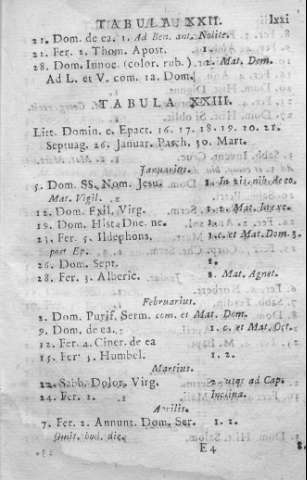 TABULA XXII. lxxi
21. Dom. de ea. 1. Ad Ben. ant. Nolite.
21. Fer. 2. Thom. Apost. 1.
28. Dom. Innoc. (color. rub.) 12. Mat. Dom.
Ad L. et V. com. 12. Dom.
TABULA XXIII.
Litt. Domin. e. Epact. 16. 17. 18. 19. 20. 21.
Septuag. 26. Januar. Pasch. 30. Mart.
Januarius.
5. Dom. SS. Nom. Jesu. nih. de eo.
Mat. Vigil.
12. Dom. Exil. Virg. 1. 2. Mat.
19. Dom. Hist. Dne. ne. 1.
23. Fer. 5. Ildephons. 1. c. et Mat. Dom. 3.
per Ep.
26. Dom. Sept. 1.
28. Fer. 3. Alberic. 3. Mat. Agnet.
Februarius.
2. Dom. Purif. Serm. com. et Mat. Dom.
9. Dom. de ea. 1. c. et Mat. Oct.
12. Fer. 4. Ciner. de ea
15. Fer. Humbel. 1. 2.
Martius.
22. Sabb. Dolor. Virg. 2 usq; ad Cap.
24. Fer. 2. Inclina.
Aprilis.
7. Fer. 2. Annunt. Dom. Ser. 1. 2.
Omit. hod. die.
E 4